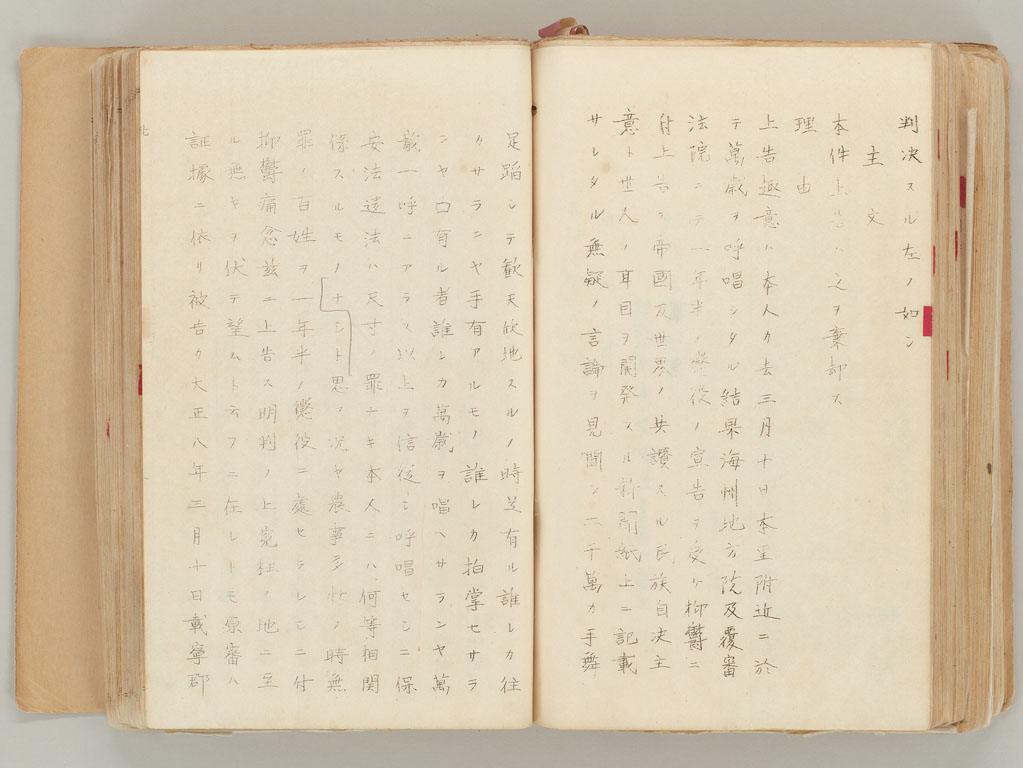 判决スル左ノ如シ
主文
本件上告ハ之ヲ棄却ス
理由
上告趣意ハ本人カ去三月十日本里附近ニ於
テ萬歳ヲ呼唱シタル結果海州地方院及覆審
法院ニテ一年半ノ懲役ノ宣告ヲ受ケ抑鬱ニ
付上告ス帝國及世界ノ共讃スル民族自决主
意ト世人ノ耳目ヲ開発スル新聞紙上ニ記載
サレタル無疑ノ言論ヲ見聞シ二千萬カ手舞
足蹈シテ歓天欣地スルノ時足有ル誰レカ往
カサラニヤ手有アルモノ誰レカ拍掌セサラ
ンヤ口有ル者誰シカ萬歳ヲ唱ヘサランヤ萬
歳一呼ニアラス以上ヲ信従シ呼唱セシニ保
安法違法ハ尺寸ノ罪ナキ本人ニハ何等相関
係スルモノナシト思フ况ヤ農事多忙ノ時無
罪ノ百姓ヲ一年半ノ懲役ニ處セラレシニ付
抑鬱痛念玆ニ上告ス明判ノ上寃枉ノ地ニ至
ル無キヲ伏テ望ムト云フニ在レトモ原審ハ
証據ニ依リ被告カ大正八年三月十日載寧郡